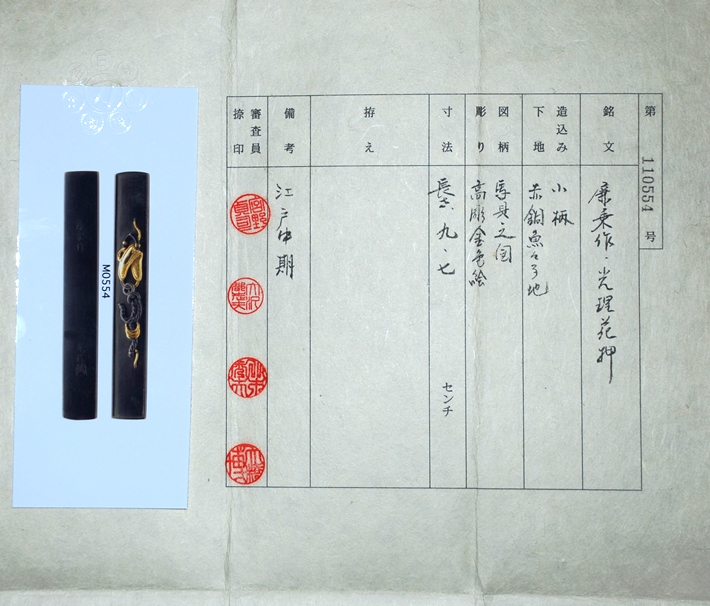 第 110554 号
銘文
廉乗作・光理花押
造込み
下地
小柄
赤銅魚々子地
図柄
彫り
馬具之図
高彫金色絵
寸法
長さ 九・七 センチ
拵え
備考
江戸中期
審査員
捺印
M0554